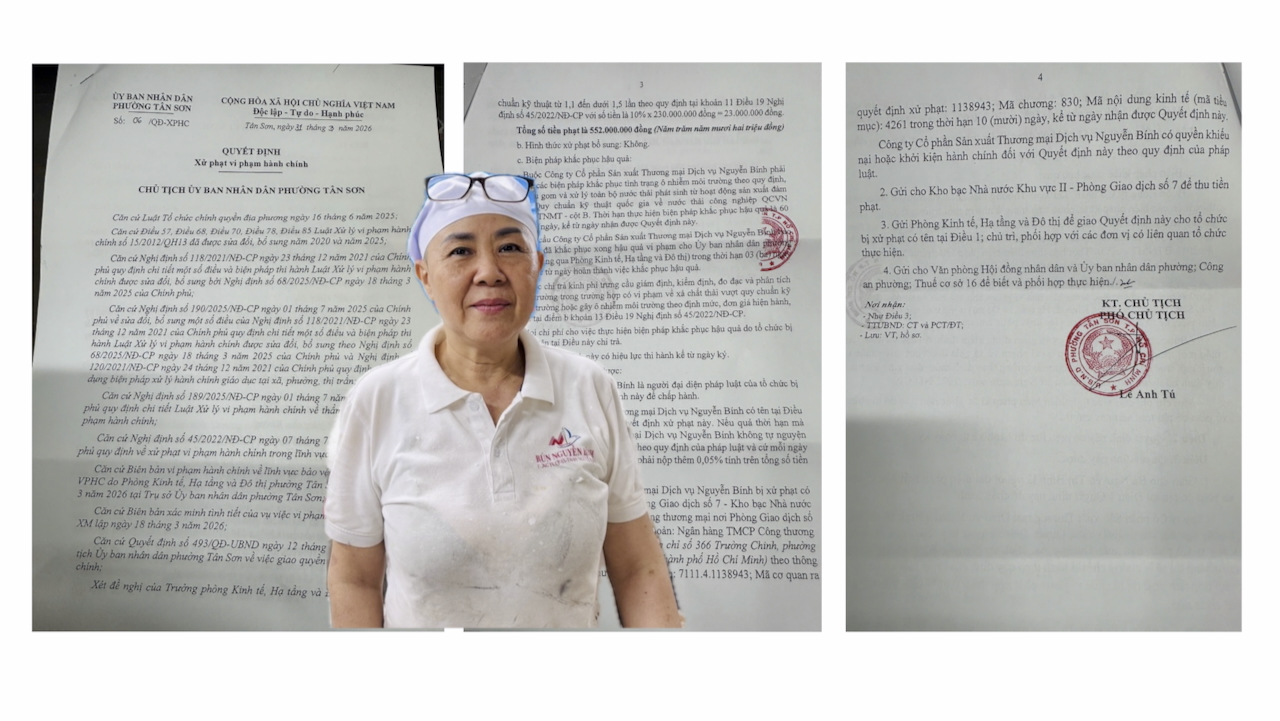 ỦY BAN NHÂN DÂN
PHƯỜNG TÂN SƠN
Số: 06 /QĐ-XPHC
CỘNG HÒA XÃ HỘI CHỦ NGHĨA VIỆT NAM
Độc lập - Tự do - Hạnh phúc
Tân Sơn, ngày 31 tháng 3 năm 2026
QUYẾT ĐỊNH
Xử phạt vi phạm hành chính
CHỦ TỊCH ỦY BAN NHÂN DÂN PHƯỜNG TÂN SƠN
Căn cứ Luật Tổ chức chính quyền địa phương ngày 16 tháng 6 năm 2025;
Căn cứ Điều 57, Điều 68, Điều 70, Điều 78, Điều 85 Luật Xử lý vi phạm hành
chính số 15/2012/QH13 đã được sửa đổi, bổ sung năm 2020 và năm 2025;
Căn cứ Nghị định số 118/2021/NĐ-CP ngày 23 tháng 12 năm 2021 của Chính
phủ quy định chi tiết một số điều và biện pháp thi hành Luật Xử lý vi phạm hành
chính được sửa đổi, bổ sung bởi Nghị định số 68/2025/NĐ-CP ngày 18 tháng 3
năm 2025 của Chính phủ;
Căn cứ Nghị định số 190/2025/NĐ-CP ngày 01 tháng 7 năm 2025 của Chính
phủ về sửa đổi, bổ sung một số điều của Nghị định số 118/2021/NĐ-CP ngày 23
tháng 12 năm 2021 của Chính phủ quy định chi tiết một số điều và biện pháp thi
hành Luật Xử lý vi phạm hành chính được sửa đổi, bổ sung theo Nghị định số
68/2025/NĐ-CP ngày 18 tháng 3 năm 2025 của Chính phủ và Nghị định
120/2021/NĐ-CP ngày 24 tháng 12 năm 2021 của Chính phủ quy định
dụng biện pháp xử lý hành chính giáo dục tại xã, phường, thị trấn
Căn cứ Nghị định số 189/2025/NĐ-CP ngày 01 tháng 7
phủ quy định chi tiết Luật Xử lý vi phạm hành chính về
phạm hành chính;
Căn cứ Nghị định số 45/2022/NĐ-CP ngày 07 tháng 7
phủ quy định về xử phạt vi phạm hành chính trong lĩnh
Căn cứ Biên bản vi phạm hành chính về lĩnh vực bảo
VPHC do Phòng Kinh tế, Hạ tầng và Đô thị phường Tân
3 năm 2026 tại Trụ sở Ủy ban nhân dân phường Tân Sơn;
Căn cứ Biên bản xác minh tình tiết của vụ việc vi phạm
XM lập ngày 18 tháng 3 năm 2026;
Căn cứ Quyết định số 493/QĐ-UBND ngày 12 tháng
tịch Ủy ban nhân dân phường Tân Sơn về việc giao quyền
chính;
Xét đề nghị của Trưởng phòng Kinh tế, Hạ tầng và
3
chuẩn kỹ thuật từ 1,1 đến dưới 1,5 lần theo quy định tại khoản 11 Điều 19 Nghị
định số 45/2022/NĐ-CP với số tiền là 10% x 230.000.000 đồng = 23.000.000 đồng.
Tổng số tiền phạt là 552.000.000 đồng (Năm trăm năm mươi hai triệu đồng)
b. Hình thức xử phạt bổ sung: Không.
c. Biện pháp khắc phục hậu quả:
Buộc Công ty Cổ phần Sản xuất Thương mại Dịch vụ Nguyễn Bính phải
các biện pháp khắc phục tình trạng ô nhiễm môi trường theo quy định,
gom và xử lý toàn bộ nước thải phát sinh từ hoạt động sản xuất đảm
Quy chuẩn kỹ thuật quốc gia về nước thải công nghiệp QCVN
TNMT - cột B. Thời hạn thực hiện biện pháp khắc phục hậu quả là 60
ngày, kể từ ngày nhận được Quyết định này.
cầu Công ty Cổ phần Sản xuất Thương mại Dịch vụ Nguyễn Bính
đã khắc phục xong hậu quả vi phạm cho Ủy ban nhân dân phường
qua Phòng Kinh tế, Hạ tầng và Đô thị) trong thời hạn 03 (ba)
từ ngày hoàn thành việc khắc phục hậu quả.
chi trả kinh phí trưng cầu giám định, kiểm định, đo đạc và phân tích
trường trong trường hợp có vi phạm về xả chất thải vượt quy chuẩn kỹ
trường hoặc gây ô nhiễm môi trường theo định mức, đơn giá hiện hành,
tại điểm b khoản 13 Điều 19 Nghị định số 45/2022/NĐ-CP.
chi phí cho việc thực hiện biện pháp khắc phục hậu quả do tổ chức bị
tên tại Điều này chi trả.
này có hiệu lực thi hành kể từ ngày ký.
Bính là người đại diện pháp luật của tổ chức bị
định này để chấp hành.
mại Dịch vụ Nguyễn Bính có tên tại Điều
định xử phạt này. Nếu quá thời hạn mà
mại Dịch vụ Nguyễn Bính không tự nguyện
theo quy định của pháp luật và cứ mỗi ngày
phải nộp thêm 0,05% tính trên tổng số tiền
mại Dịch vụ Nguyễn Bính bị xử phạt có
Giao dịch số 7 - Kho bạc Nhà nước
thương mại nơi Phòng Giao dịch số
khoản: Ngân hàng TMCP Công thương
chỉ số 366 Trường Chinh, phường
thành phố Hồ Chí Minh) theo thông
7111.4.1138943; Mã cơ quan ra
BÚN NGUYỄN BÍNH
4
quyết định xử phạt: 1138943; Mã chương: 830; Mã nội dung kinh tế (mã tiểu
mục): 4261 trong thời hạn 10 (mười) ngày, kể từ ngày nhận được Quyết định này.
Công ty Cổ phần Sản xuất Thương mại Dịch vụ Nguyễn Bính có quyền khiếu
nại hoặc khởi kiện hành chính đối với Quyết định này theo quy định của pháp
luật.
2. Gửi cho Kho bạc Nhà nước Khu vực II - Phòng Giao dịch số 7 để thu tiền
phạt.
3. Gửi Phòng Kinh tế, Hạ tầng và Đô thị để giao Quyết định này cho tổ chức
bị xử phạt có tên tại Điều 1; chủ trì, phối hợp với các đơn vị có liên quan tổ chức
thực hiện.
4. Gửi cho Văn phòng Hội đồng nhân dân và Ủy ban nhân dân phường; Công
an phường; Thuế cơ sở 16 để biết và phối hợp thực hiện./.
Nơi nhận:
- Như Điều 3;
- TTUBND: CT và PCT/ĐT;
- Lưu: VT, hồ sơ.
KT. CHỦ TỊCH
PHÓ CHỦ TỊCH
U.B.N.D PHƯỜNG TÂN SƠN T.P HỒ CHÍ MINH
Lê Anh Tú